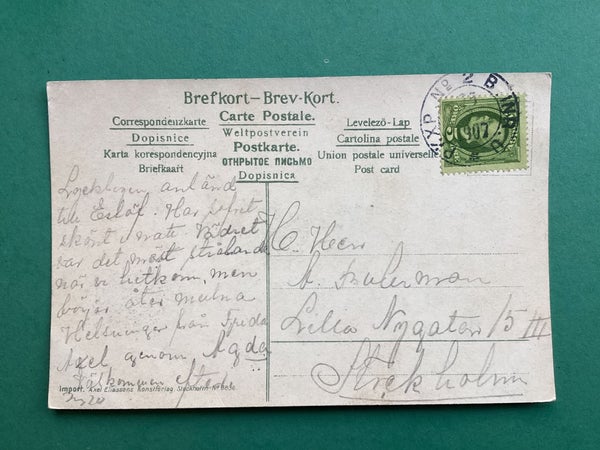 Brefkort—Brev-Kort.
Correspondenzkarte
Carte Postale.
Levelező-Lap
Dopisnice
Weltpostverein
Cartolina postale
Karta korespondencyjna
Postkarte.
Union postale universelle
Briefkaart
ОТКРЫТОЕ ПИСЬМО
Post card
Dopisnica
PKXP No 2 B
907
anländ
till Eslöf. Har sofvit
skönt i natt. Vädret
var det mest strålande
när vi hitkom, men
börjar åter mulna
Helsningar från Frida
Axel, genom, Agda
H. Herr
A.
Lilla Nygatan 15 III
Stockholm
Import. Axel Eliassons Konstförlag. Stockholm